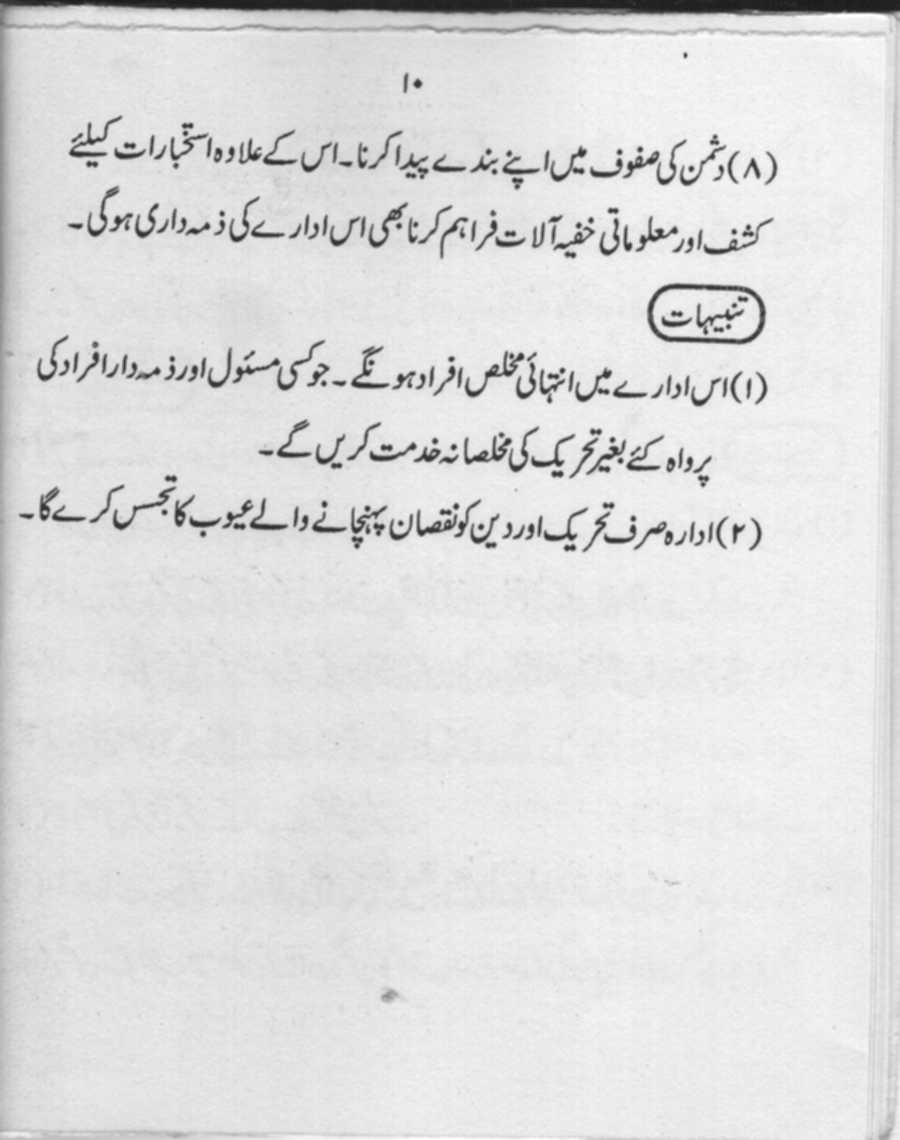 ۱۰
(۸) دشمن کی صفوف میں اپنے بندے پیدا کرنا۔ اس کے علاوہ استخبارات کیلئے
کشف اور معلوماتی خفیہ آلات فراہم کرنا بھی اس ادارے کی ذمہ داری ہوگی۔
تنبیہات
(۱) اس ادارے میں انتہائی مخلص افراد ہونگے۔ جو کسی مسئول اور ذمہ دار افراد کی
پرواہ کئے بغیر تحریک کی مخلصانہ خدمت کریں گے۔
(۲) ادارہ صرف تحریک اور دین کو نقصان پہنچانے والے عیوب کا تجسس کرے گا۔